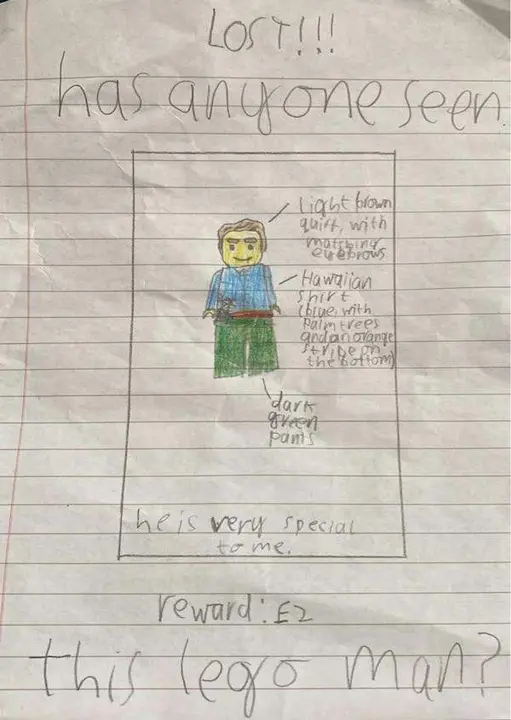 LOST!!!
has anyone seen
light brown
quiff, with
matching
eyebrows
Hawaiian
shirt
(blue, with
palm trees
and an orange
stripe on
the bottom)
dark
green
pants
he is very special
to me.
reward: £2
this lego man?